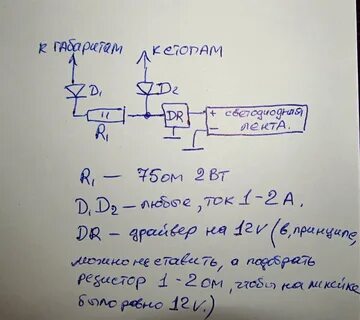 К ГАБАРИТАМ К СТОПАМ
D₁ D₂
DR + СВЕТОДИОДНАЯ
- ЛЕНТА.
R₁
R₁ — 75 ом 2 Вт
D₁ D₂ — любые, ток 1-2 А.
DR — драйвер на 12V (в, принципе,
можно не ставить, а подобрать
резистор 1-2 ом, чтобы на
было ровно 12V.)